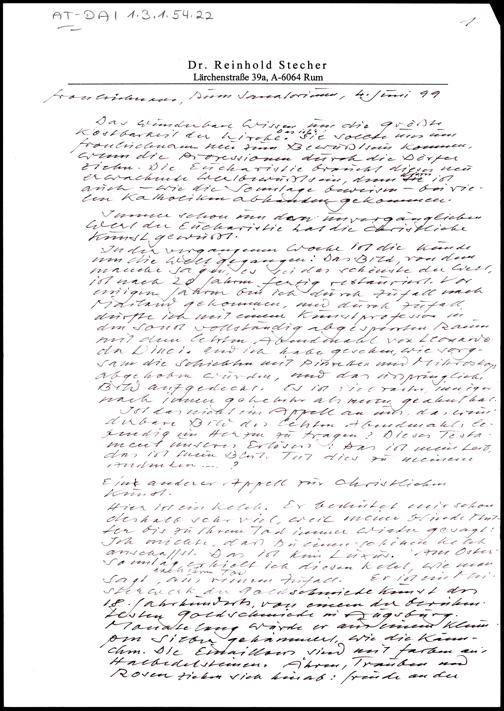 AT-DAI 1.3.1.54.22
1
Dr. Reinhold Stecher
Lärchenstraße 39a, A-6064 Rum
Fronleichnam, Rum Sanatorium, 4. Juni 99
Das wunderbare Wissen um die größte
Kostbarkeit der Kirche. Sie sollte uns um
Fronleichnam neu zum Bewußtsein kommen,
wenn die Prozessionen durch die Dörfer
ziehn. Die Eucharistie braucht dieses neu
erwachende Wertbewußtsein, denn es ist
auch – wie die Sonntage beweisen – bei vie-
len Katholiken abhanden gekommen.
Immer schon um den unvergänglichen
Wert der Eucharistie hat die christliche
Kunst gewußt.
In der vergangenen Woche ist die Kunde
um die Welt gegangen: Das Bild, von dem
manche sagen, es sei das schönste der Welt,
ist nach 20 Jahren fertig restauriert. Vor
einigen Jahren bin ich durch Zufall nach
Mailand gekommen, und durch Zufall
durfte ich mit einem Kunstprofessor in
den sonst vollständig abgesperrten Raum
mit dem letzten Abendmahl von Leonardo
da Vinci. Und ich habe gesehen, wie sorg-
sam die Schichten mit und Mikroskop
abgehoben wurden, und das ursprüngliche
Bild aufgedeckt. Es ist viel
nach innen gekehrt als
Ist das nicht ein Appell an uns, das wun-
derbare Bild des letzten Abendmahls le-
bendig im Herzen zu tragen? Dieses Testa-
ment unseres Erlösers: Das ist mein Leib,
das ist mein Blut. Tut dies zu meinem
Andenken ... ?
Ein anderer Appell zur christlichen
Kunst.
Hier ist ein Kelch. Er bedeutet mir schon
deshalb sehr viel, weil meine Mut-
ter bis zu ihrem Tod immer wieder gesagt:
Ich möchte, daß du einen schönen Kelch
anschaffst. Das ist kein Luxus. Am Oster-
sonntag nach ihrem Tod erhielt ich diesen Kelch, wie man
sagt, aus reinem Zufall. Er ist ein Mei-
sterwerk der Goldschmiedekunst des
18. Jahrhunderts, von einem der berühm-
testen Goldschmiede in Augsburg.
Monatelang wurde er aus einem Klum-
pen Silber gehämmert, wie die
Die Emaillen sind mit Farben aus
Halbedelsteinen. Ähren, Trauben und
Rosen ziehen sich hinab: Freude an der